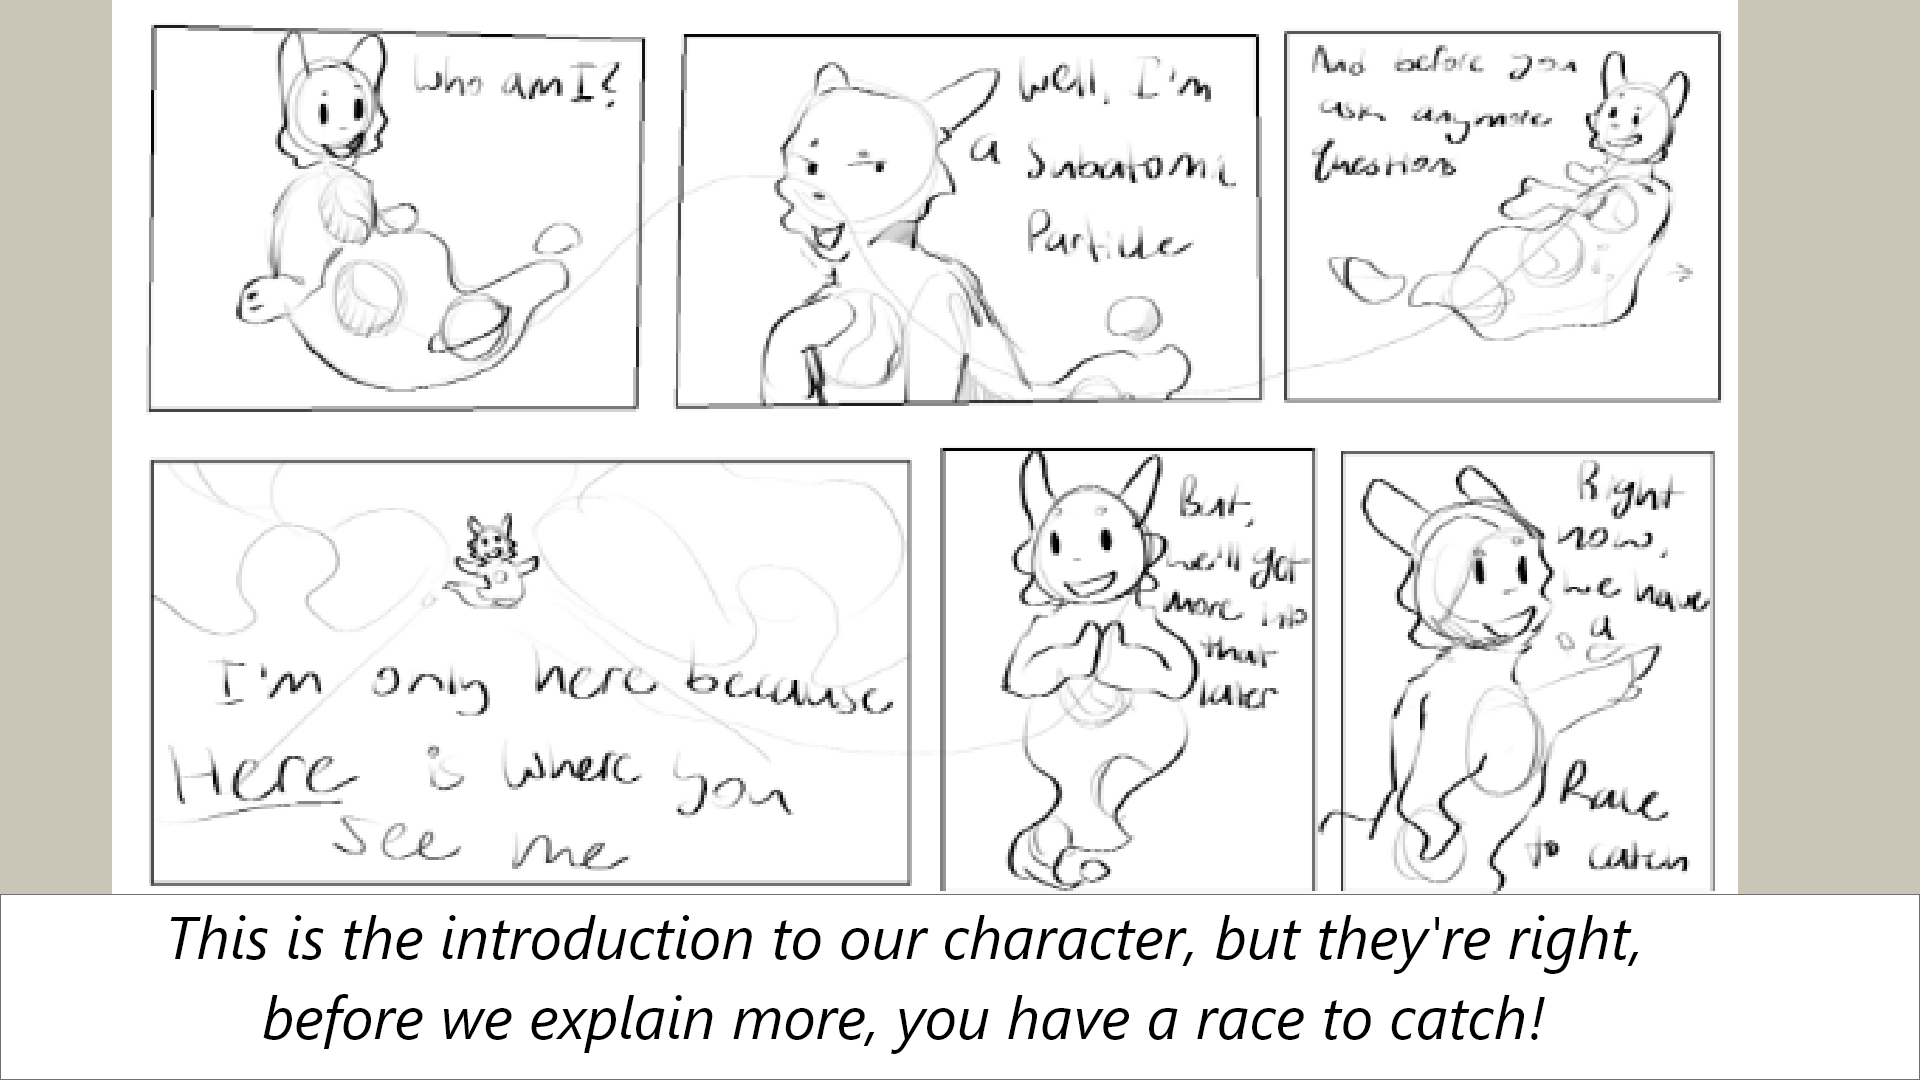 Who am I?
Well, I'm
a Subatomic
Particle
And before you
ask anymore
Questions
I'm only here because
Here is where you
see me
But,
we'll get
more into
that
later
Right
now,
we have
a
Race
to catch
This is the introduction to our character, but they're right,
before we explain more, you have a race to catch!